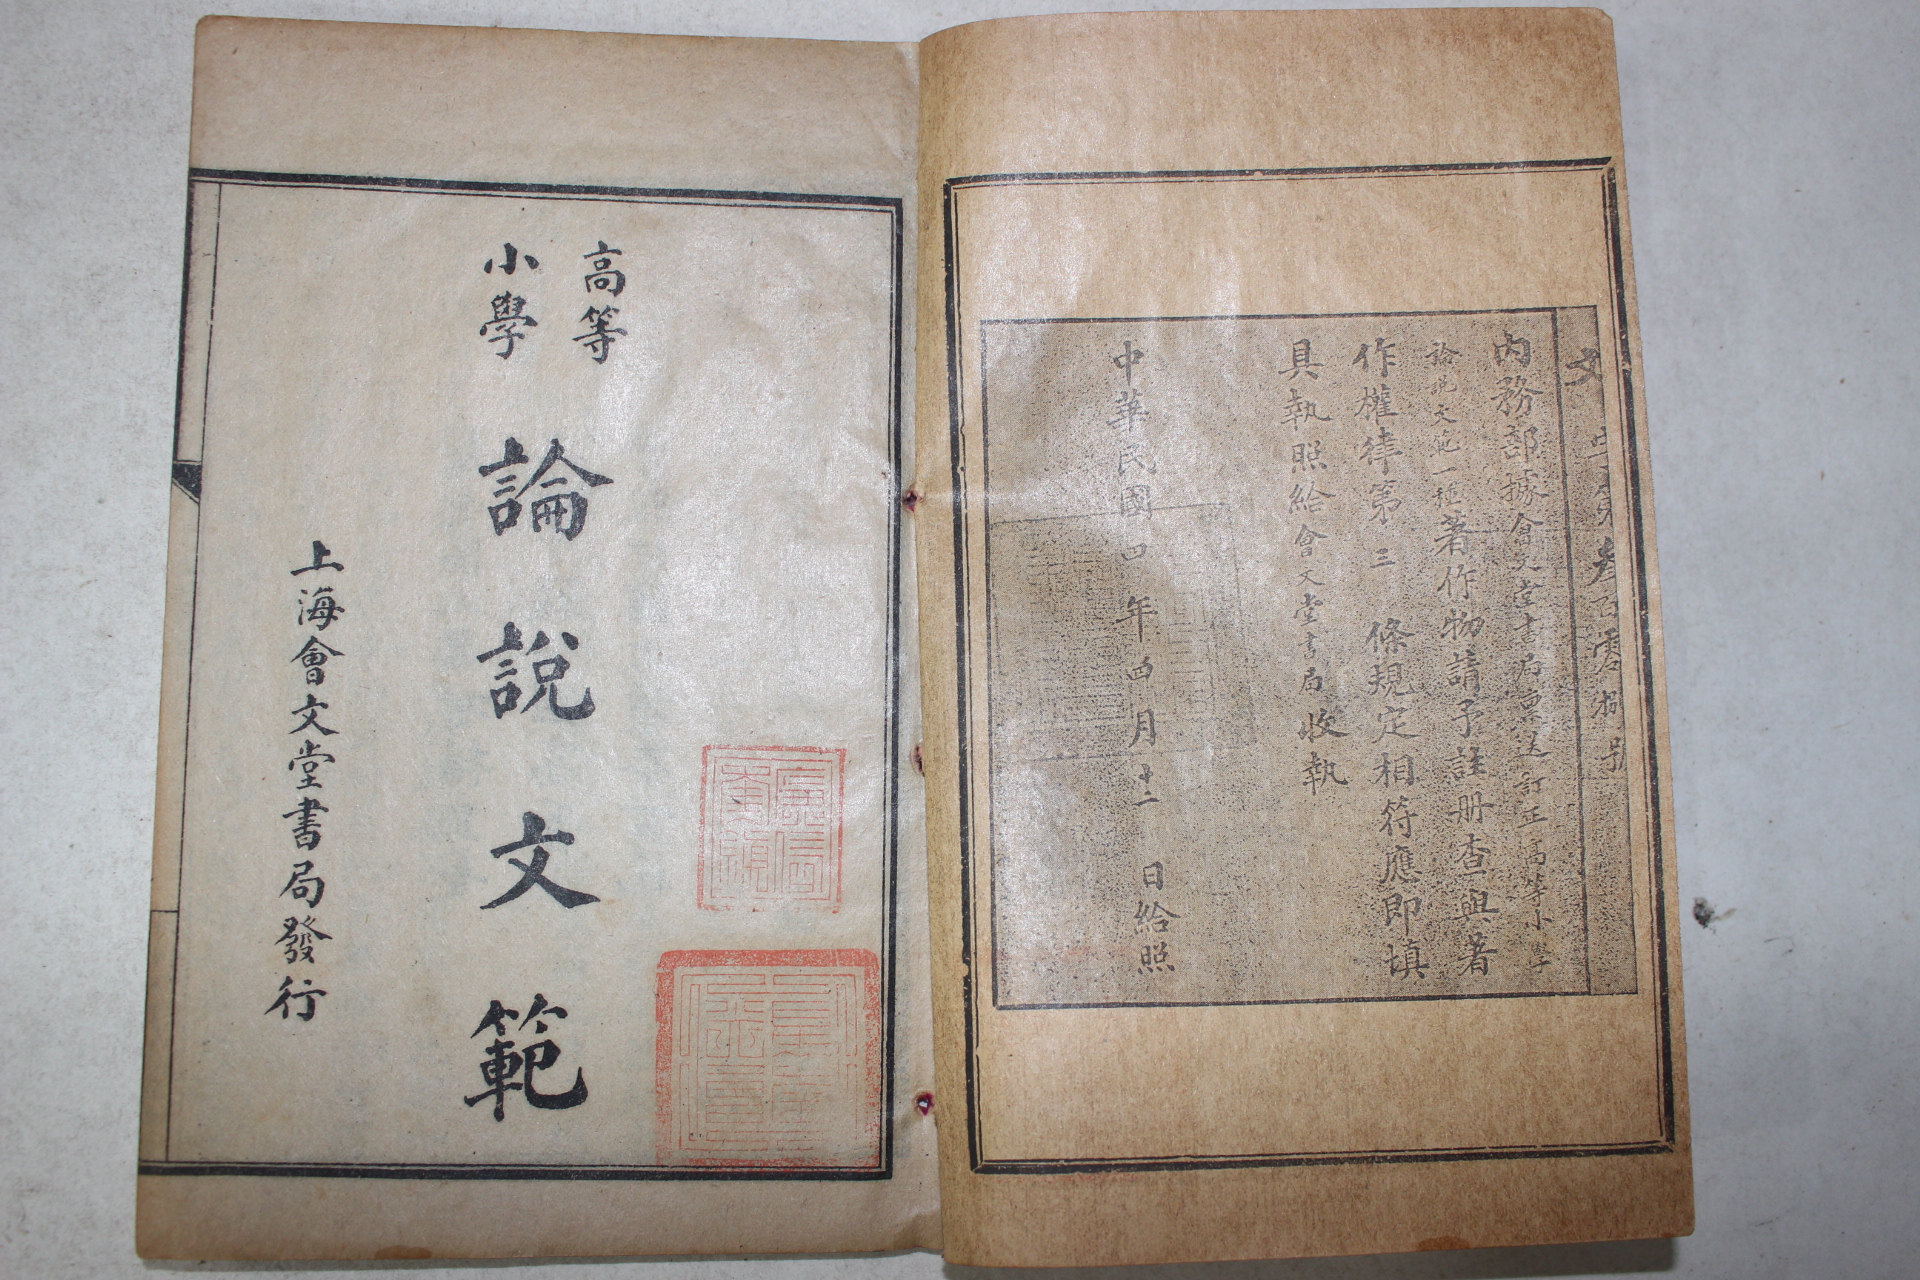 文字第叁百零 號
內務部據會文堂書局稟送訂正高等小學
論說文範一種著作物請予註册查與著
作權律第三條規定相符應即填
具執照給會文堂書局收執
中華民國四年四月十二日給照
高等
小學
論說文範
上海會文堂書局發行